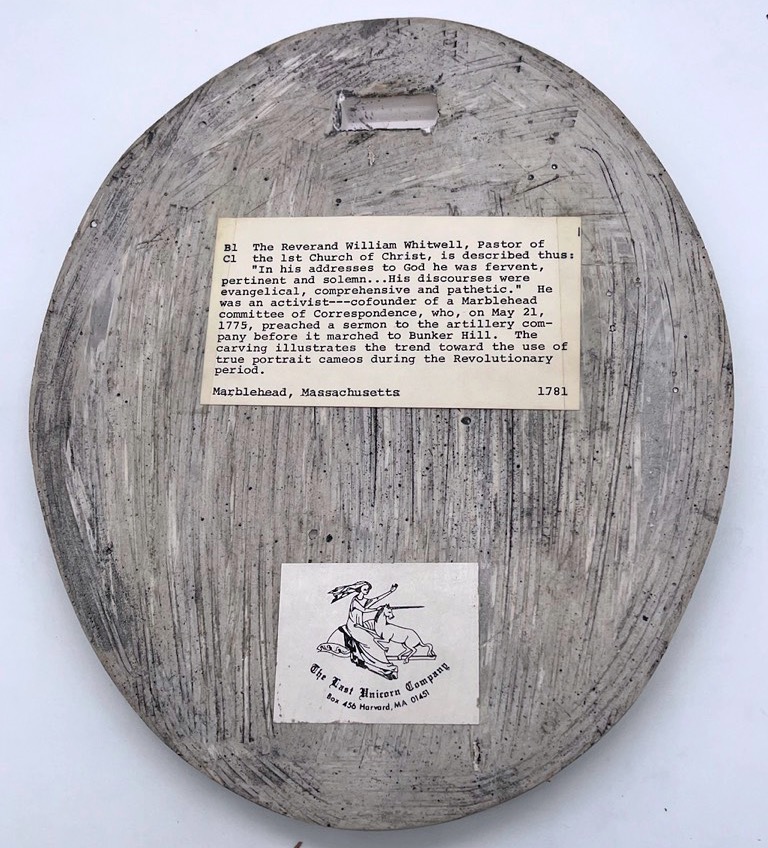 B1 The Reverand William Whitwell, Pastor of
C1 the 1st Church of Christ, is described thus:
"In his addresses to God he was fervent,
pertinent and solemn...His discourses were
evangelical, comprehensive and pathetic." He
was an activist---cofounder of a Marblehead
committee of Correspondence, who, on May 21,
1775, preached a sermon to the artillery com-
pany before it marched to Bunker Hill. The
carving illustrates the trend toward the use of
true portrait cameos during the Revolutionary
period.
Marblehead, Massachusetts 1781
The Last Unicorn Company
Box 456 Harvard, MA 01451